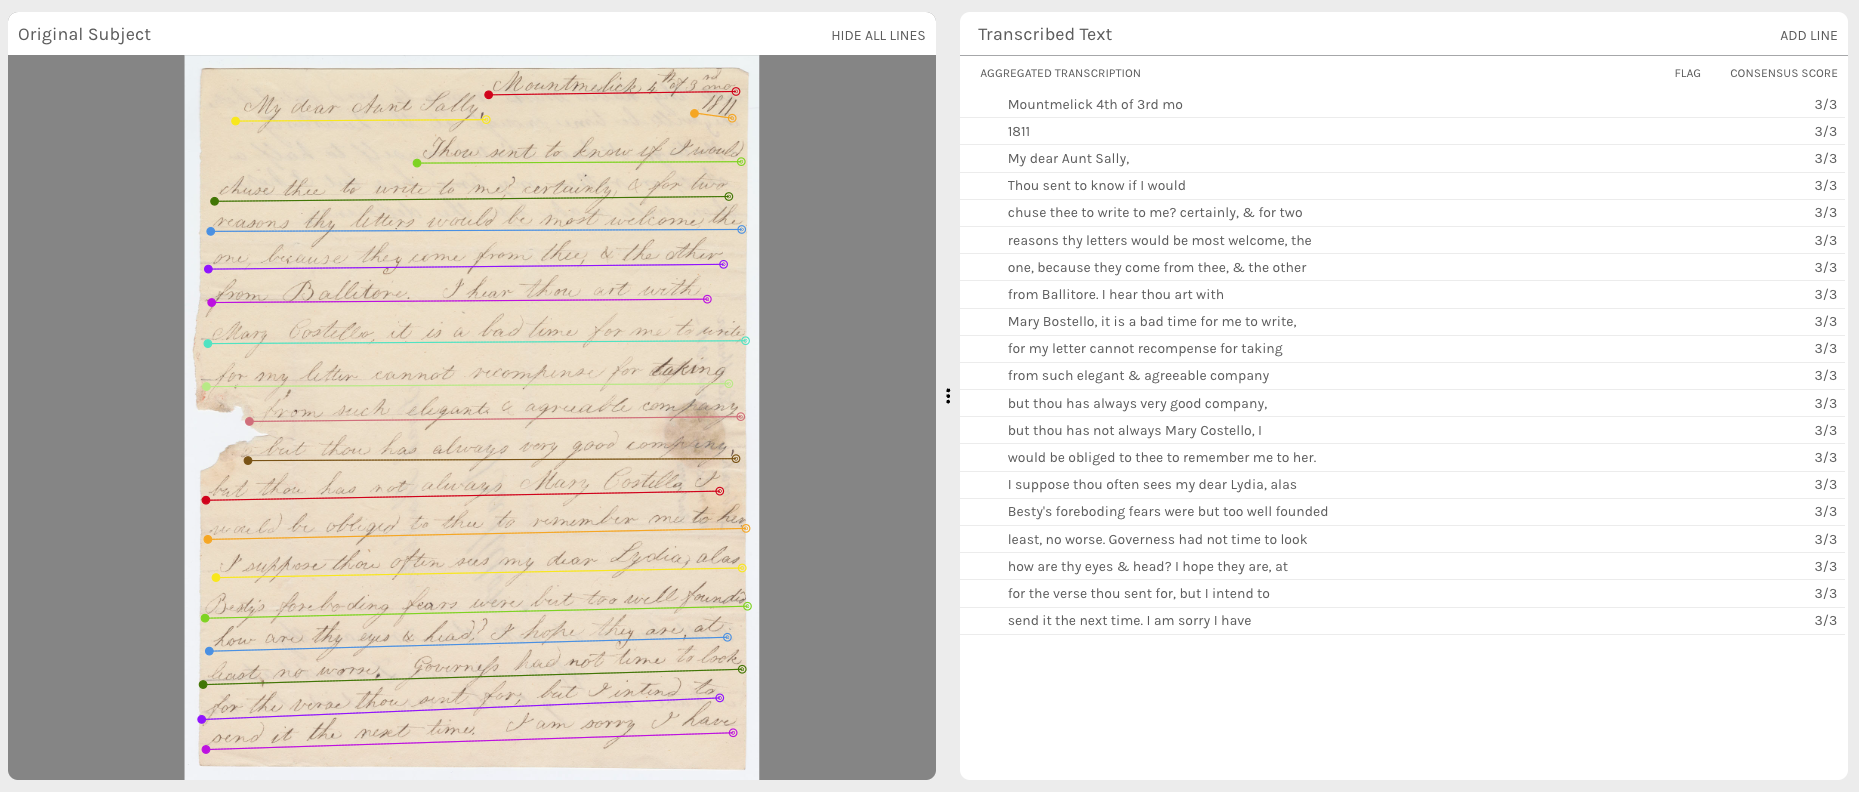 Original Subject
HIDE ALL LINES
Mountmelick 4th of 3rd mo
1811
My dear Aunt Sally,
Thou sent to know if I would
chuse thee to write to me? certainly, & for two
reasons thy letters would be most welcome the
one, because they come from thee, & the other
from Ballitore. I hear thou art with
Mary Costello, it is a bad time for me to write
for my letter cannot recompense for taking
from such elegant & agreeable company
but thou has always very good company,
but thou has not always Mary Costello, I
would be obliged to thee to remember me to her
I suppose thou often sees my dear Lydia, alas
Besty's foreboding fears were but too well founded
how are thy eyes & head? I hope they are, at
least, no worse. Governess had not time to look
for the verse thou sent for, but I intend to
send it the next time. I am sorry I have
Transcribed Text
ADD LINE
AGGREGATED TRANSCRIPTION FLAG CONSENSUS SCORE
Mountmelick 4th of 3rd mo 3/3
1811 3/3
My dear Aunt Sally, 3/3
Thou sent to know if I would 3/3
chuse thee to write to me? certainly, & for two 3/3
reasons thy letters would be most welcome, the 3/3
one, because they come from thee, & the other 3/3
from Ballitore. I hear thou art with 3/3
Mary Bostello, it is a bad time for me to write, 3/3
for my letter cannot recompense for taking 3/3
from such elegant & agreeable company 3/3
but thou has always very good company, 3/3
but thou has not always Mary Costello, I 3/3
would be obliged to thee to remember me to her. 3/3
I suppose thou often sees my dear Lydia, alas 3/3
Besty's foreboding fears were but too well founded 3/3
least, no worse. Governess had not time to look 3/3
how are thy eyes & head? I hope they are, at 3/3
for the verse thou sent for, but I intend to 3/3
send it the next time. I am sorry I have 3/3